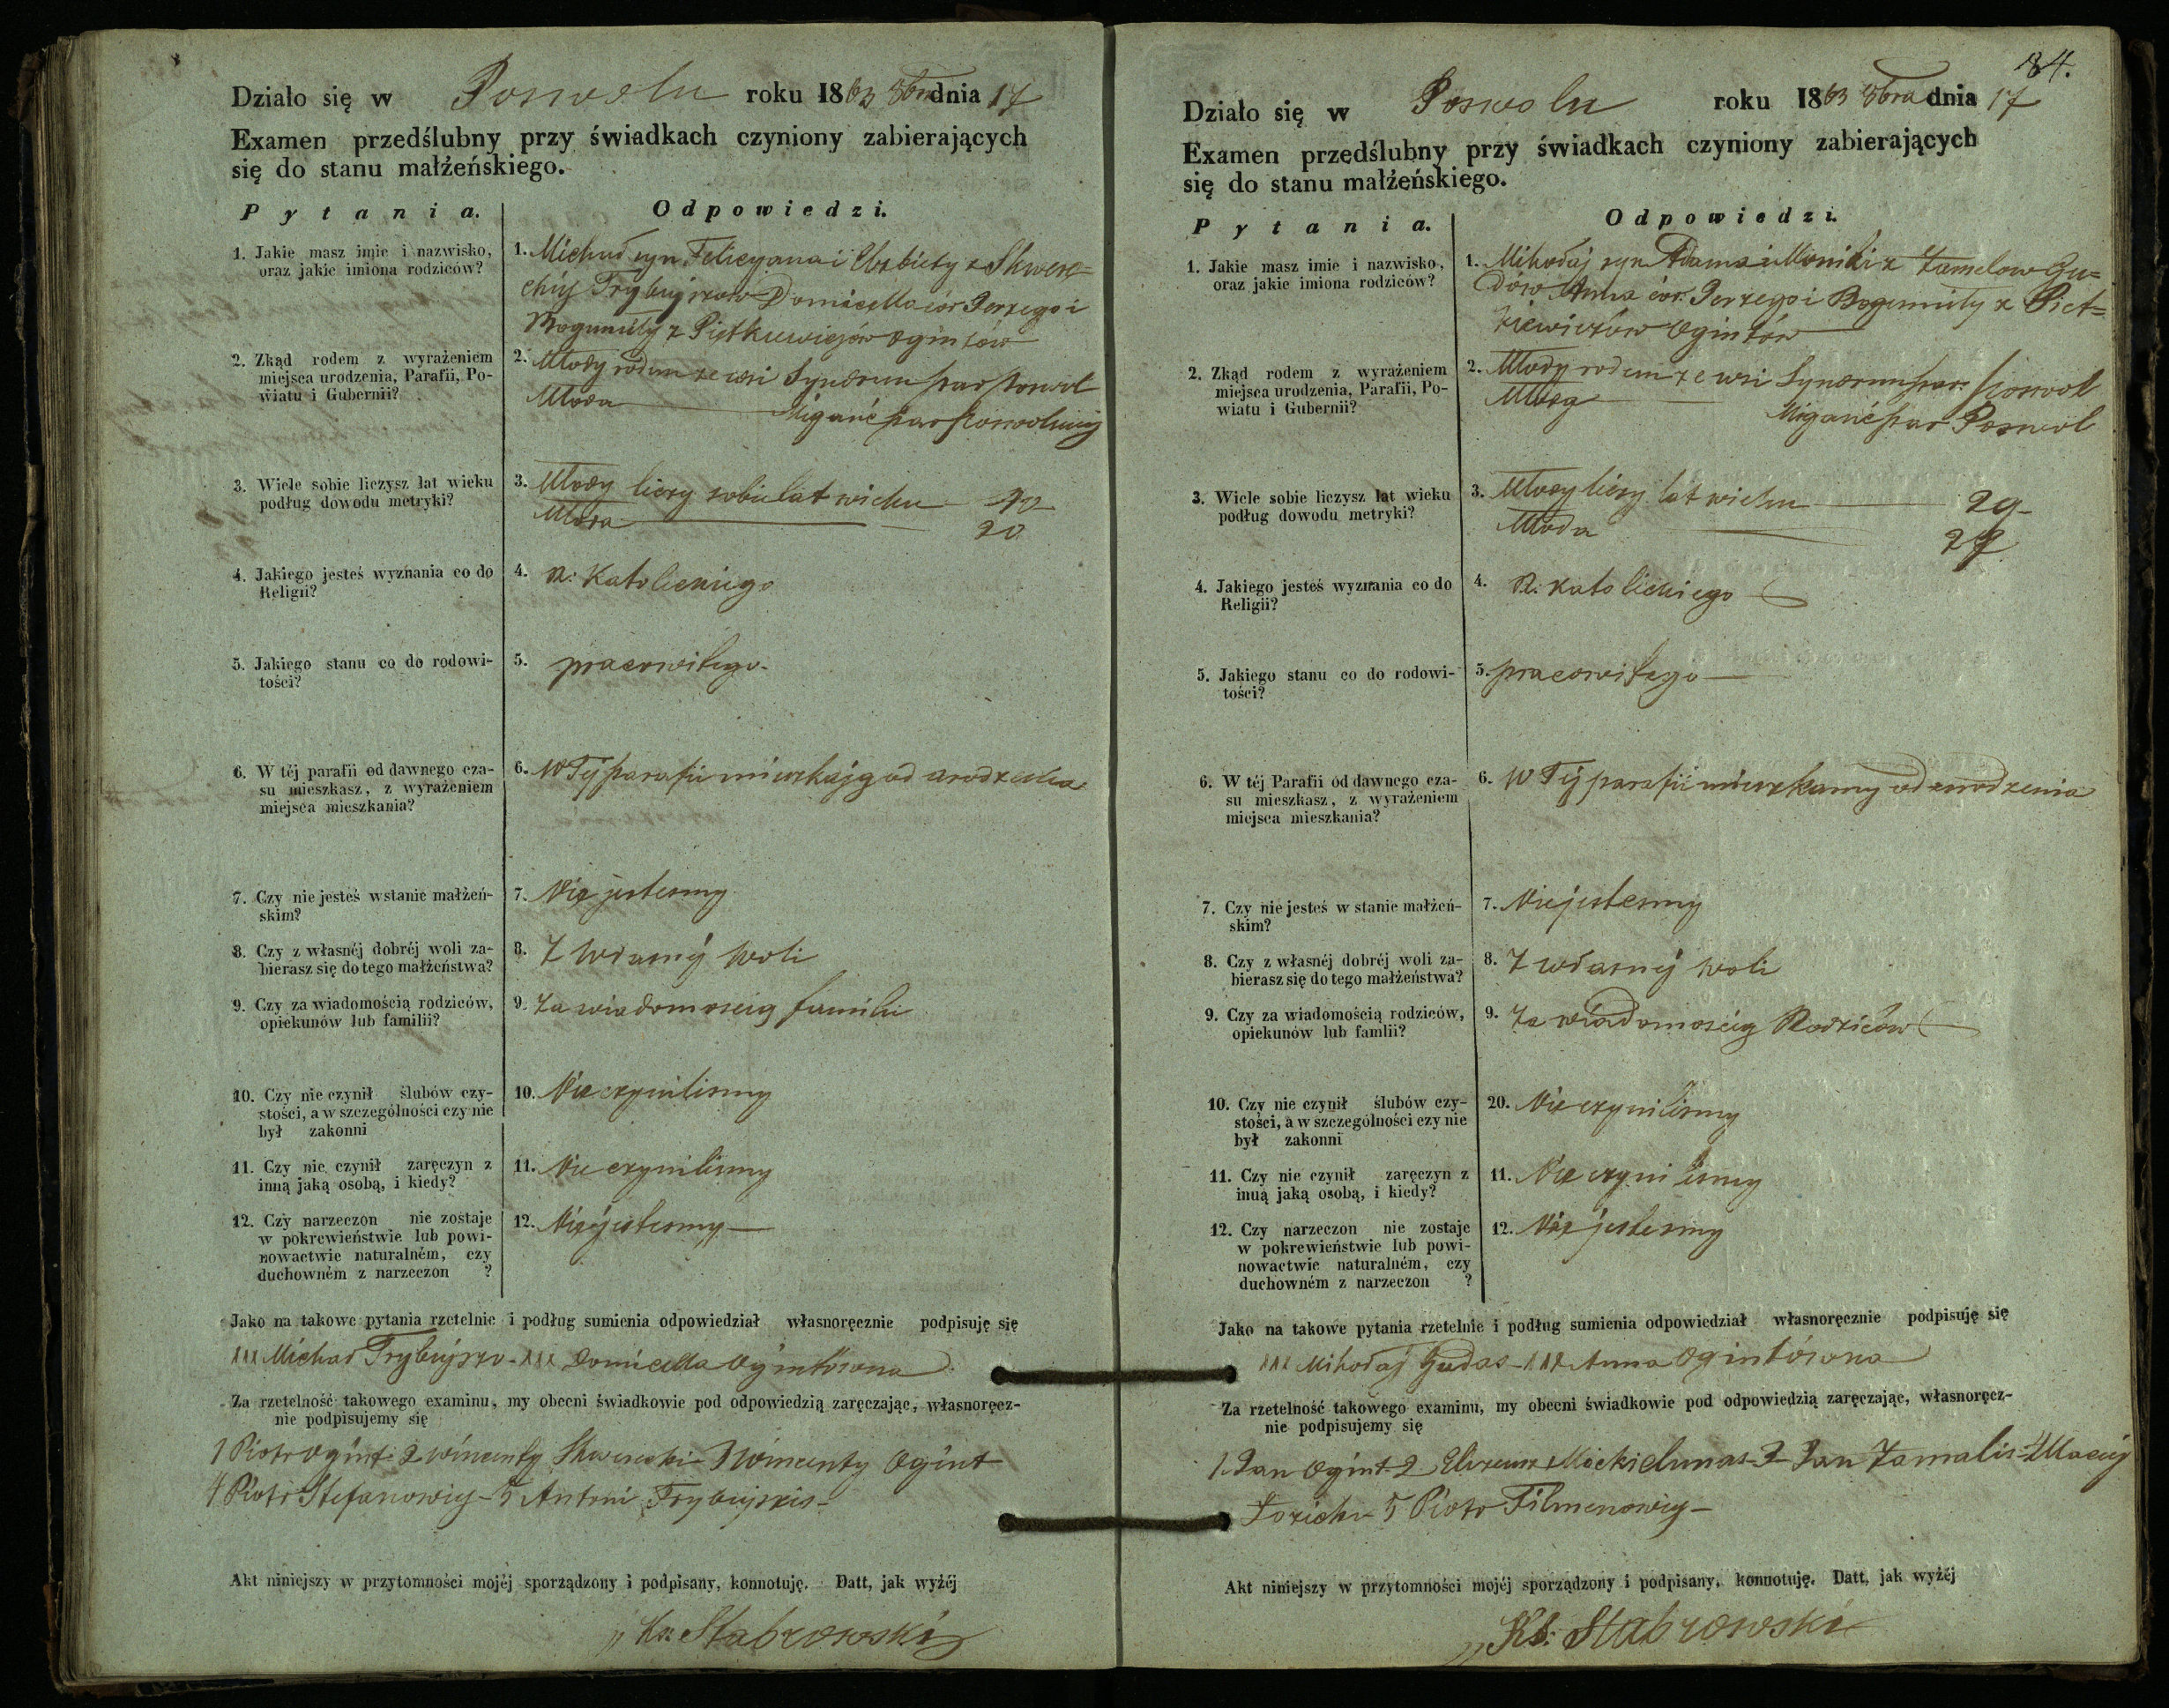 Działo się w Poswolu roku 1863 8bra dnia 17
Examen przedślubny przy świadkach czyniony zabierających
się do stanu małżeńskiego.
Pytania.
Odpowiedzi.
1. Jakie masz imie i nazwisko,
oraz jakie imiona rodziców?
1. Michał syn Felicyana i Elżbiety z Skwere=
ckich Trybujszow Domicella cór Jerzego i
Bogumiły z Pietkiewiczów Ogintów
2. Zkąd rodem z wyrażeniem
miejsca urodzenia, Parafii, Po-
wiatu i Gubernii?
2. Młody rodem ze wsi par Poswol
Młoda Migańć par Poswolskiej
3. Wiele sobie liczysz lat wieku
podług dowodu metryki?
3. Młody liczy sobie lat wieku
Młoda 20
4. Jakiego jesteś wyznania co do
Religii?
4. R. Katolickiego
5. Jakiego stanu co do rodowi-
tości?
5. pracowitego
6. W téj parafii od dawnego cza-
su mieszkasz, z wyrażeniem
miejsca mieszkania?
6. W Tej parafii mieszkają od urodzenia
7. Czy nie jesteś w stanie małżeń-
skim?
7. Nie jestesmy
8. Czy z własnéj dobréj woli za-
bierasz się do tego małżeństwa?
8. Z własnej woli
9. Czy za wiadomością rodziców,
opiekunów lub familii?
9. Za wiadomoscią familii
10. Czy nie czynił ślubów czy-
stości, a w szczególności czy nie
był zakonni
10. Nie czynilismy
11. Czy nie czynił zaręczyn z
inną jaką osobą, i kiedy?
11. Nie czynilismy
12. Czy narzeczon nie zostaje
w pokrewieństwie lub powi-
nowactwie naturalném, czy
duchowném z narzeczon ?
12. Nie jestesmy
Jako na takowe pytania rzetelnie i podług sumienia odpowiedział własnoręcznie podpisuję się
XXX Michał Trybujszo - XXX Domicella Ogintówna
Za rzetelność takowego examinu, my obecni świadkowie pod odpowiedzią zaręczając, własnoręcz-
nie podpisujemy się
1 Piotr Ogint 2 Wincenty Skwerecki 3 Wincenty Ogint
4 Piotr Stefanowicz - 5 Antoni Trybujszis
Akt niniejszy w przytomności mojéj sporządzony i podpisany, konnotuję. Datt, jak wyżéj
Ks: Stabrowski
84.
Działo się w Poswolu roku 1863 8bra dnia 17
Examen przedślubny przy świadkach czyniony zabierających
się do stanu małżeńskiego.
Pytania.
Odpowiedzi.
1. Jakie masz imie i nazwisko,
oraz jakie imiona rodziców?
1. Mikołaj syn Adama i Moniki z Zamelow Gu=
dów Anna cór. Jerzego i Bogumiły z Piet=
kiewiczów Ogintów
2. Zkąd rodem z wyrażeniem
miejsca urodzenia, Parafii, Po-
wiatu i Gubernii?
2. Młody rodem ze wsi par. Poswol
Młoda Migańć par Poswol
3. Wiele sobie liczysz lat wieku
podług dowodu metryki?
3. Młody liczy lat wieku 29
Młoda
4. Jakiego jesteś wyznania co do
Religii?
4. R. Katolickiego
5. Jakiego stanu co do rodowi-
tości?
5. pracowitego
6. W téj Parafii od dawnego cza-
su mieszkasz, z wyrażeniem
miejsca mieszkania?
6. W Tej parafii mieszkamy od urodzenia
7. Czy nie jesteś w stanie małżeń-
skim?
7. Nie jestesmy
8. Czy z własnéj dobréj woli za-
bierasz się do tego małżeństwa?
8. Z własnej woli
9. Czy za wiadomością rodziców,
opiekunów lub familii?
9. Za wiadomoscią Rodziców
10. Czy nie czynił ślubów czy-
stości, a w szczególności czy nie
był zakonni
20. Nie czynilismy
11. Czy nie czynił zaręczyn z
inuą jaką osobą, i kiedy?
11. Nie czynilismy
12. Czy narzeczon nie zostaje
w pokrewieństwie lub powi-
nowactwie naturalném, czy
duchowném z narzeczon ?
12. Nie jestesmy
Jako na takowe pytania rzetelnie i podług sumienia odpowiedział własnoręcznie podpisuję się
XXX Mikołaj Gudas - XXX Anna Ogintówna
Za rzetelność takowego examinu, my obecni świadkowie pod odpowiedzią zaręczając, własnoręcz-
nie podpisujemy się
1 Jan Ogint 2 Elizeusz Mickielunas 3 Jan Zamalis 4 Maciej
5 Piotr Filmenowicz
Akt niniejszy w przytomności mojéj sporządzony i podpisany, konnotuję. Datt, jak wyżéj
Ks. Stabrowski